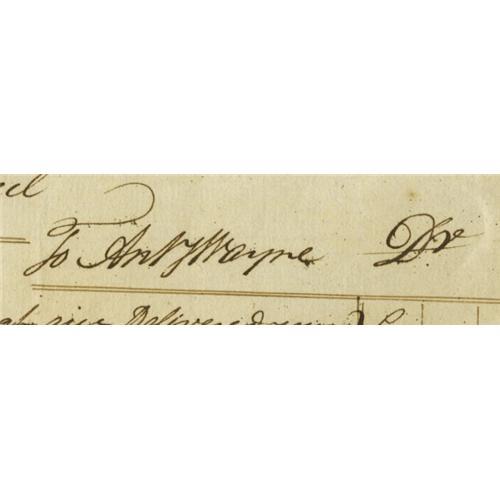 To Anty Wayne Dr
Delivered